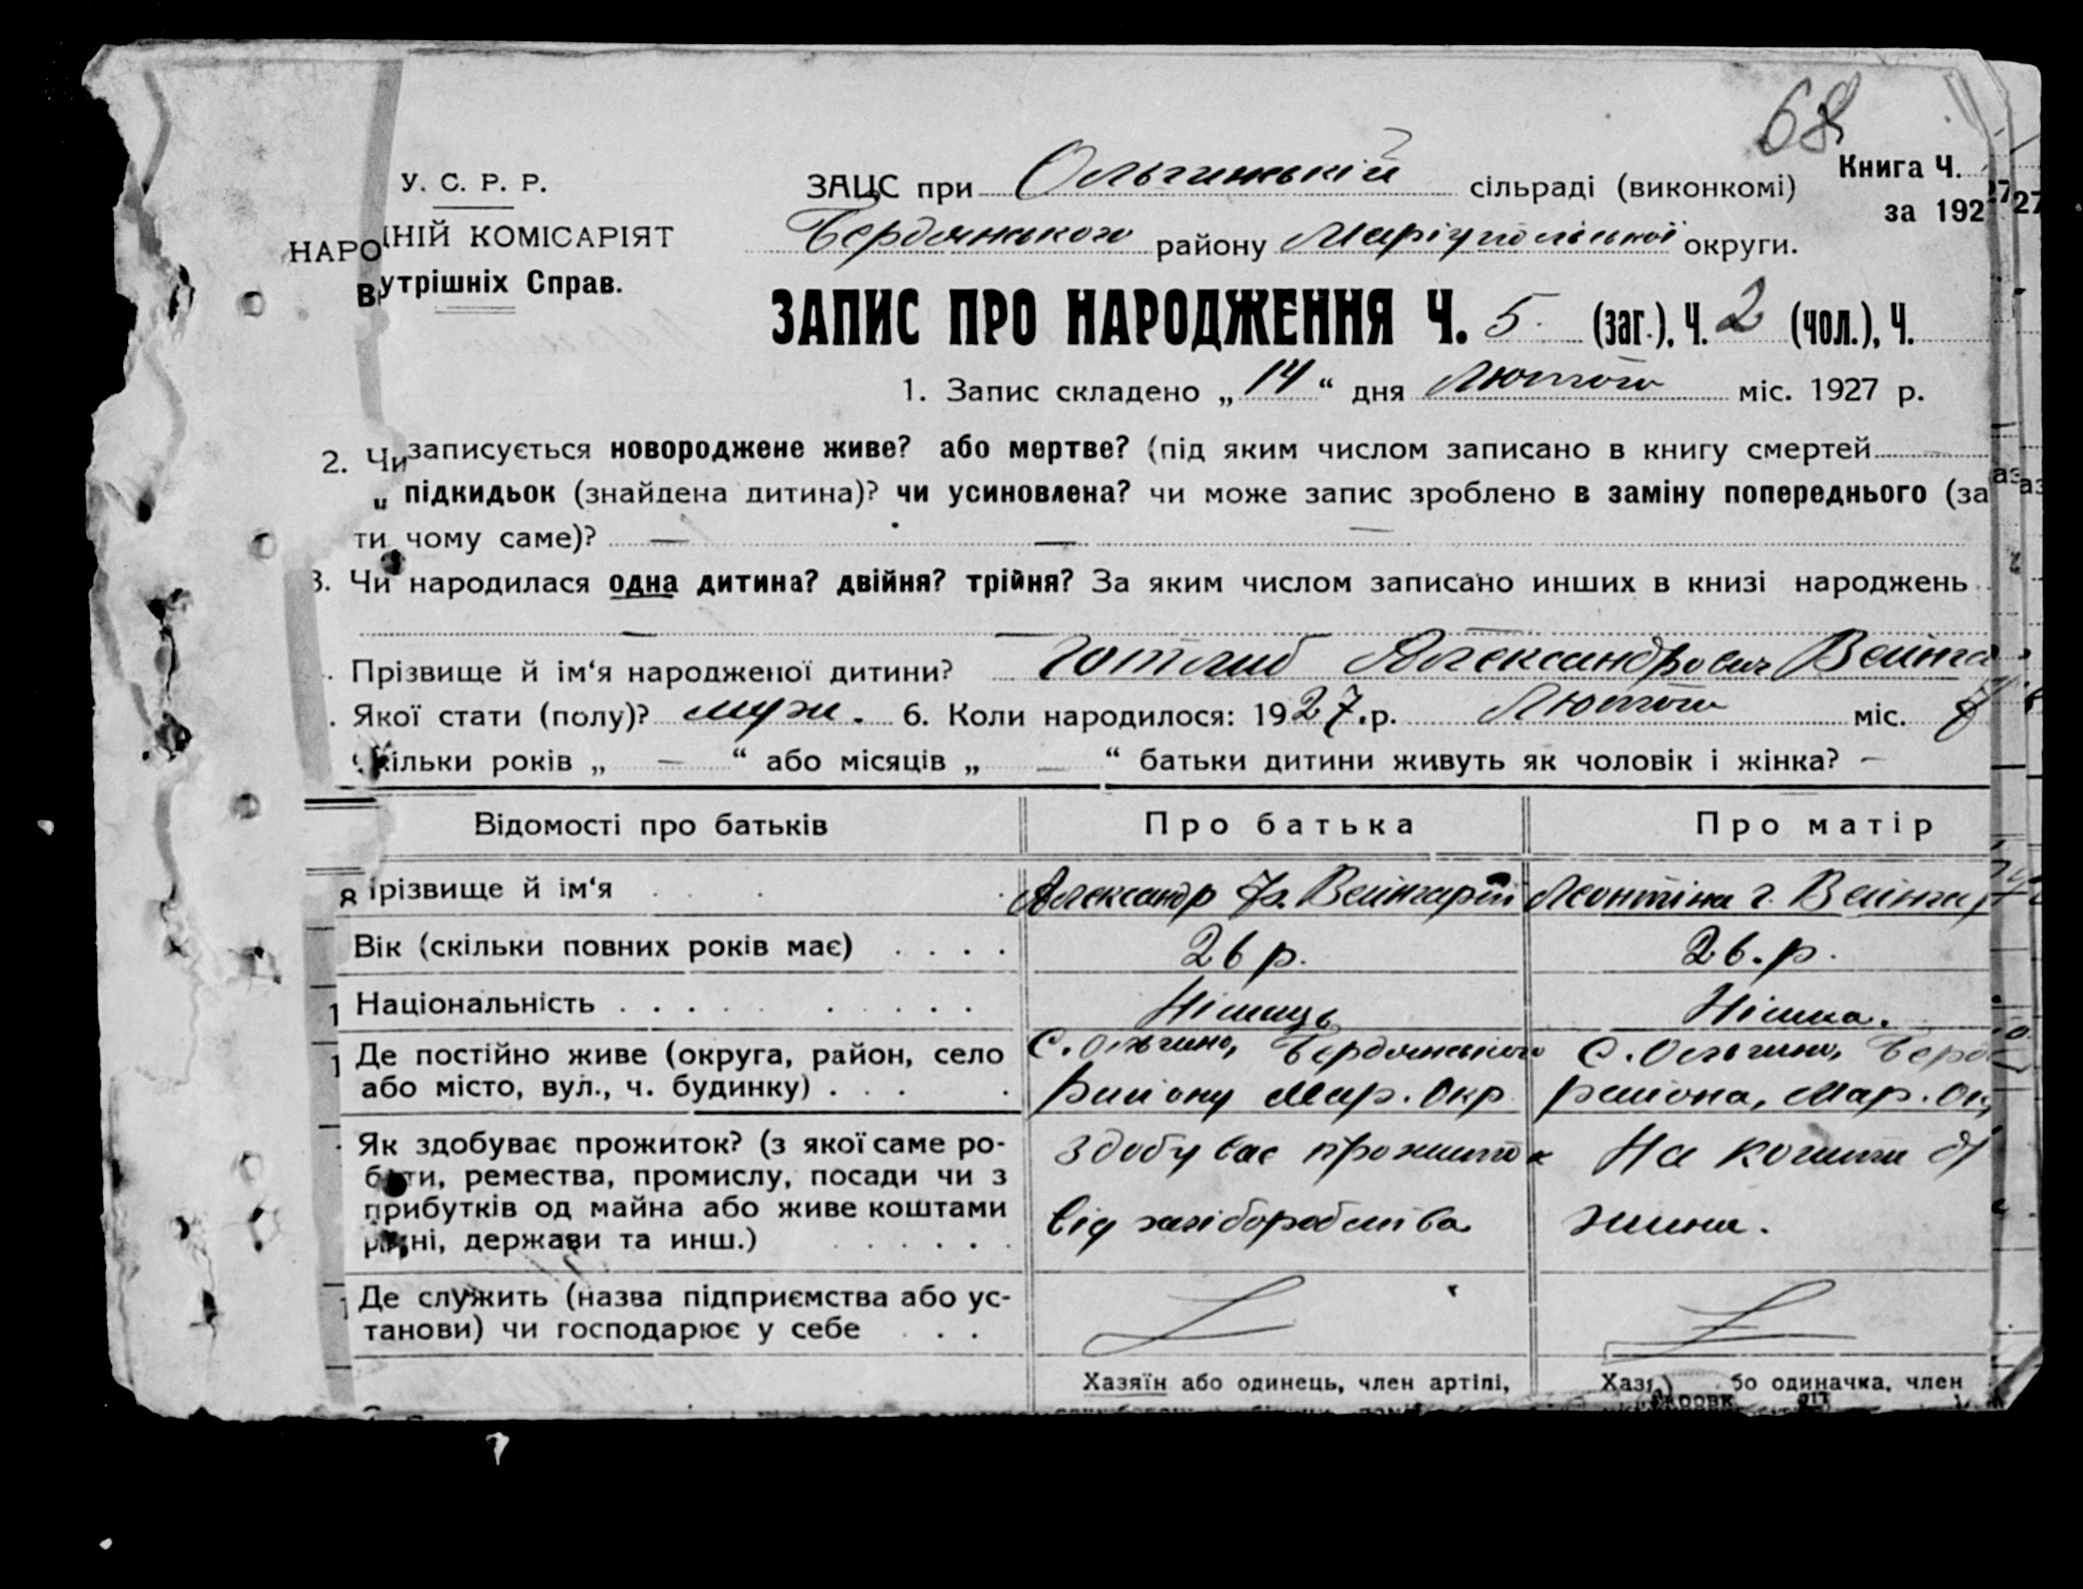 68
У. С. Р. Р.
ЗАЦС при Ольгинській сільраді (виконкомі)
Книга Ч.
за 192
27
НАРО НІЙ КОМІСАРІЯТ
Внутрішніх Справ.
Бердянського району Маріупольської округи.
ЗАПИС ПРО НАРОДЖЕННЯ Ч. 5 (заг.), Ч. 2 (чол.), Ч.
1. Запис складено „ 14 “ дня Лютого міс. 1927 р.
2. Чи записується новороджене живе? або мертве? (під яким числом записано в книгу смертей
„ підкидьок (знайдена дитина)? чи усиновлена? чи може запис зроблено в заміну попереднього (за
ти чому саме)? — — —
3. Чи народилася одна дитина? двійня? трійня? За яким числом записано инших в книзі народжень
Прізвище й ім‘я народженої дитини? Готлиб Александрович Вейнга
Якої стати (полу)? муж. 6. Коли народилося: 1927. р. Лютого міс. 8
кільки років „ — “ або місяців „ — “ батьки дитини живуть як чоловік і жінка? –
Відомості про батьків Про батька Про матір
Прізвище й ім‘я . . . Александр Ф. Вейнгарт Леонтіна Г. Вейнгар
Вік (скільки повних років має) . . . . 26 р. 26. р.
Національність . . . . . . . . . . Німець Німка.
Де постійно живе (округа, район, село С. Ольгино, Бердянського С. Ользино, Берд
або місто, вул., ч. будинку) . . . . Району Мар. Окр района, Мар. Ок
Як здобуває прожиток? (з якої саме ро- Здобуває прожиток На кошти
боти, ремества, промислу, посади чи з
прибутків од майна або живе коштами від хліборобства
рідні, держави та инш.) . . . . . .
Де служить (назва підприємства або ус-
танови) чи господарює у себе . . .
Хазяїн або одинець, член артілі, Хазя бо одиначка, член